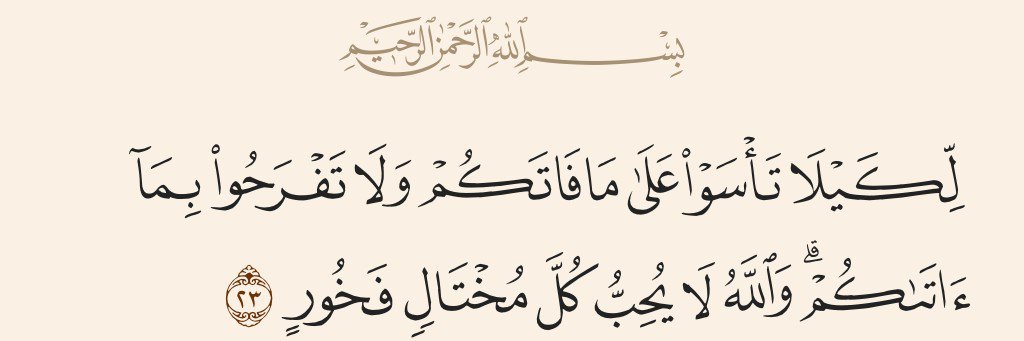 بِسْمِ ٱللَّهِ ٱلرَّحْمَٰنِ ٱلرَّحِيمِ
لِّكَيْلَا تَأْسَوْا۟ عَلَىٰ مَا فَاتَكُمْ وَلَا تَفْرَحُوا۟ بِمَآ
ءَاتَىٰكُمْ ۗ وَٱللَّهُ لَا يُحِبُّ كُلَّ مُخْتَالٍ فَخُورٍ ٢٣